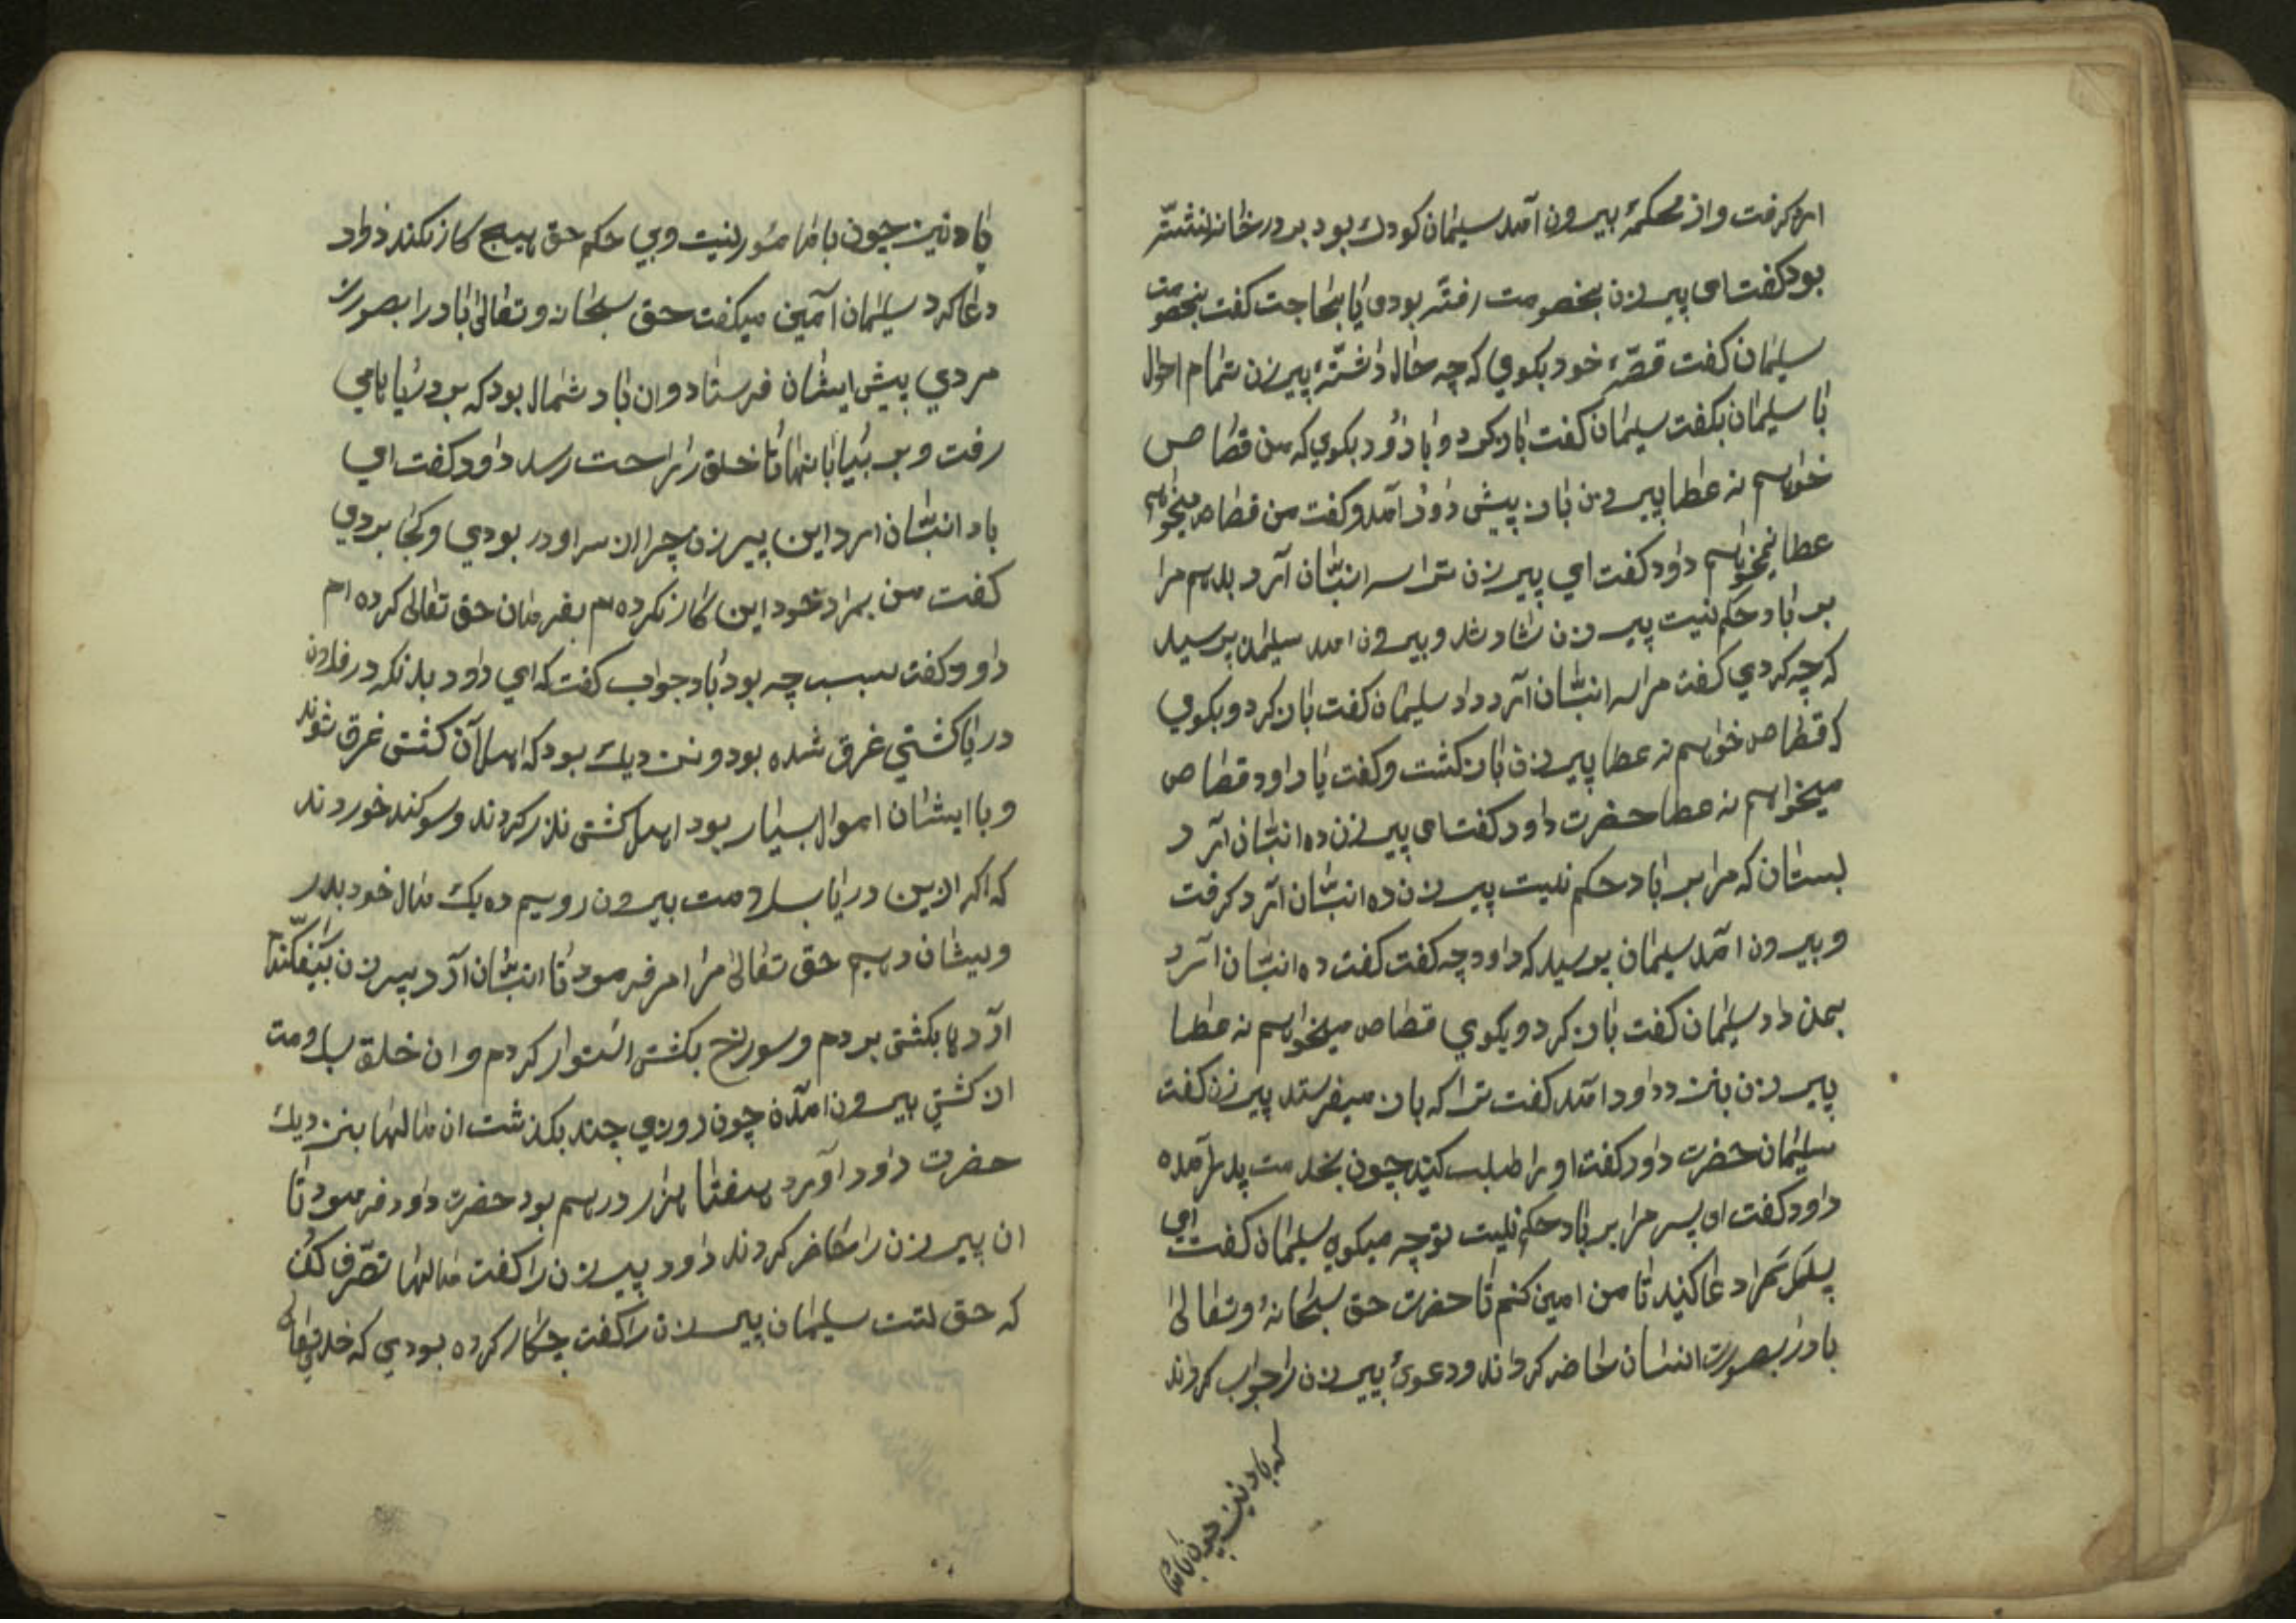 ارد كرفت واز محكمۀ بیرون آمد سلیمان كودك بود بر در خانه نشسته
بود كفت ای پیرزن بخصومت رفته بودی یا بحاجت كفت بخصومت
سلیمان كفت قصّۀ خود بكوی كه چه حال داشتۀ پیرزن تمام احوال
با سلیمان بكفت سلیمان كفت باز كرد و با داؤد بكوی كه من قصاص
خواهم نه عطا پیرزن باز پیش داؤد آمد و كفت من قصاص میخواهم
عطا نمیخواهم داود كفت ای پیرزن ترا سه انبان آرد بدهم مرا
بر باد حكم نیست پیرزن شاد شد و بیرون امد سلیمان پرسید
كه چه كردی كفت مرا سه انبان آرد داد سلیمان كفت باز كرد و بكوی
كه قصاص خواهم نه عطا پیرزن باز كشت و كفت یا داود قصاص
میخواهم نه عطا حضرت داود كفت ای پیرزن ده انبان آرد
بستان كه مرا بر باد حكم نیست پیرزن ده انبان آرد كرفت
و بیرون امد سلیمان پرسید كه داود چه كفت كفت ده انبان آرد
بمن داد سلیمان كفت باز كرد و بكوی قصاص میخواهم نه عطا
پیرزن بنزد داود آمد كفت ترا كه باز میفرستد پیرزن كفت
سلیمان حضرت داود كفت او را طلب كنید چون بخدمت پدر آمده
داود كفت ای پسر مرا بر باد حكم نیست تو چه میكوی سلیمان كفت ای
پدر شما دعا كنید تا من امین كنم تا حضرت حق سبحانۀ و تعالی
باد را بصورت انسان حاضر كرداند و دعوئ پیرزن را جواب كرداند
كه باد نیز چون با ما
باد نیز چون با ما مسٔور نیست و بی حكم حق هیچ كار نكند داود
دعا كرد سلیمان آمین میكفت حق سبحانه و تعالی باد را بصورت
مردی پیش ایشان فرستاد و ان باد شمال بود كه بر دریا بامی
رفت و بر بیابانها تا خلق را راحت رسد داود كفت ای
باد انبان ارد این پیرزن چرا از سر او در بودی و كجا بردی
كفت من بمراد خود این كار نكرده ام بفرمان حق تعالی كرده ام
داود كفت سبب چه بود باد جواب كفت كه ای داود بدانكه در فلان
دریا كشتی غرق شده بود و نزدیك بود كه اهل آن كشتی غرق شوند
و با ایشان اموال بسیار بود اهل كشتی نذر كردند و سوكند خوردند
كه اكر ازین دریا بسلامت بیرون رویم ده یك مال خود بدر
ویشان دهیم حق تعالی مرا امر فرمود تا انبان آرد پیرزن بیفكندم
ارد را بكشتی بردم و سوراخ بكشتی استوار كردم و ان خلق بسلامت
از كشتی بیرون امدن چون روزی چند بكذشت ان مالها بنزدیك
حضرت داود اورد هفتا هزار درهم بود حضرت داود فرمود تا
ان پیرزن را حاضر كردند داود پیرزن را كفت مالها تصرف كن
كه حق تست سلیمان پیرزن را كفت چه كار كرده بودی كه خدای تعالی